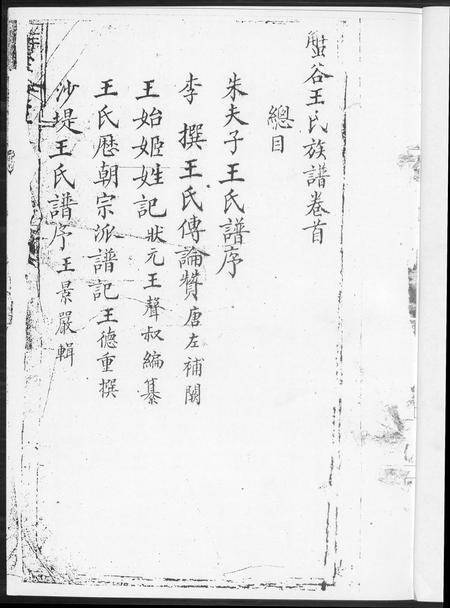 盤谷王氏族譜卷首
總目
朱夫子王氏譜序
李 撰王氏傳論贊唐左補闕
王始姬姓記狀元王聲叔編纂
王氏歷朝宗派譜記王德重撰
沙堤王氏譜序王景嚴輯